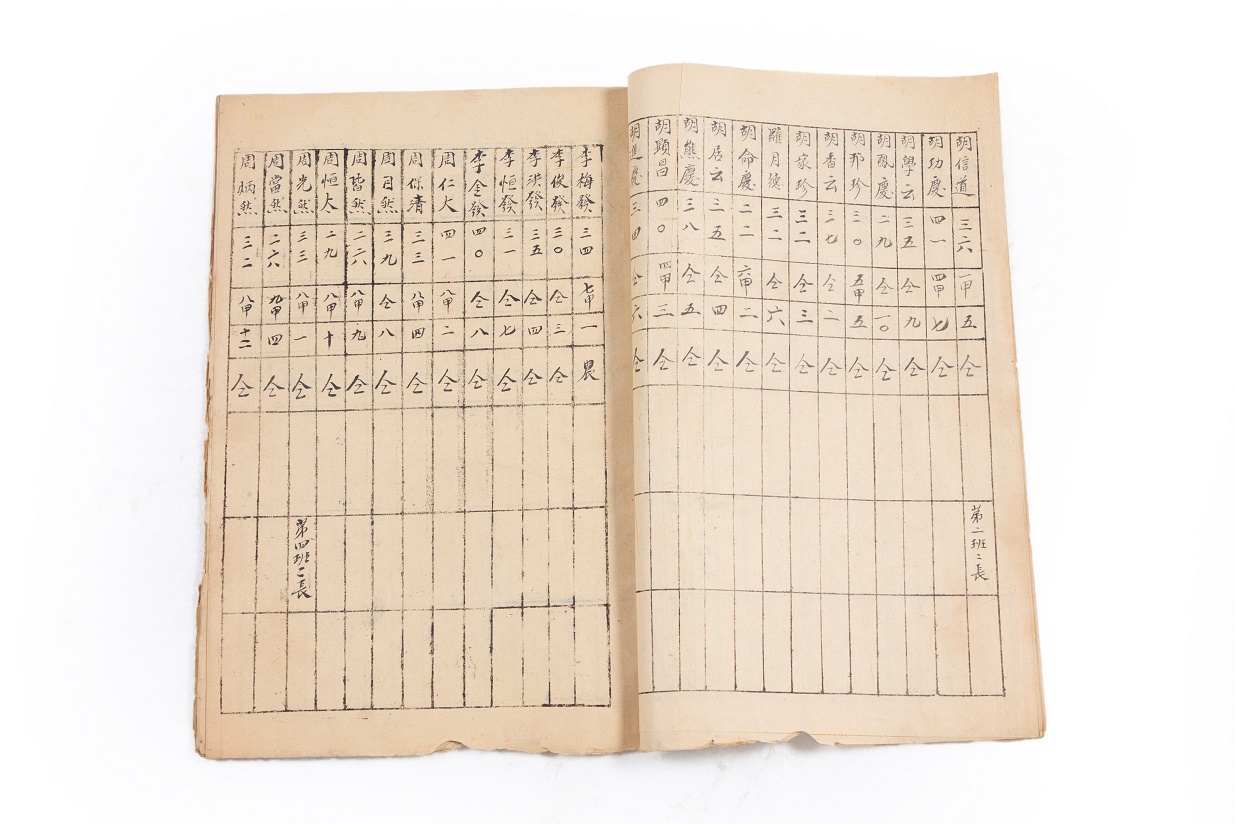 胡信道 三六 一甲 五 仝 第二班〻長
胡功慶 四一 四甲 七 仝
胡學云 三五 仝 九 仝
胡鳳慶 二九 仝 一〇 仝
胡邦珍 三〇 五甲 五 仝
胡香云 三七 仝 二 仝
胡家珍 三二 仝 三 仝
羅月德 三二 仝 六 仝
胡命慶 二二 六甲 二 仝
胡居云 三五 仝 四 仝
胡熊慶 三八 仝 五 仝
胡顯昌 四〇 四甲 三 仝
胡進 三四 仝 六 仝
李梅發 三四 七甲 一 農
李俊發 三〇 仝 三 仝
李洪發 三五 仝 四 仝
李恒發 三一 仝 七 仝
李金發 四〇 仝 八 仝
周仁大 四一 八甲 二 仝
周保青 三三 八甲 四 仝
周月然 三九 仝 八 仝
周皆然 二六 八甲 九 仝
周恒太 二九 八甲 十 仝
周光然 三三 八甲 一 仝 第四班〻長
周當然 二六 九甲 四 仝
周炳然 三二 八甲 十二 仝